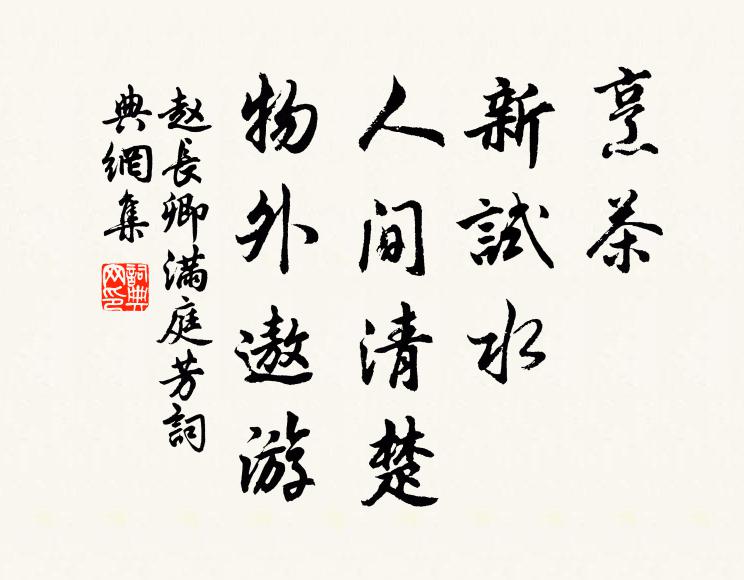 烹茶
新試水
人间清楚
物外遨游
赵長卿满庭芳詞
典網集
詞典网印